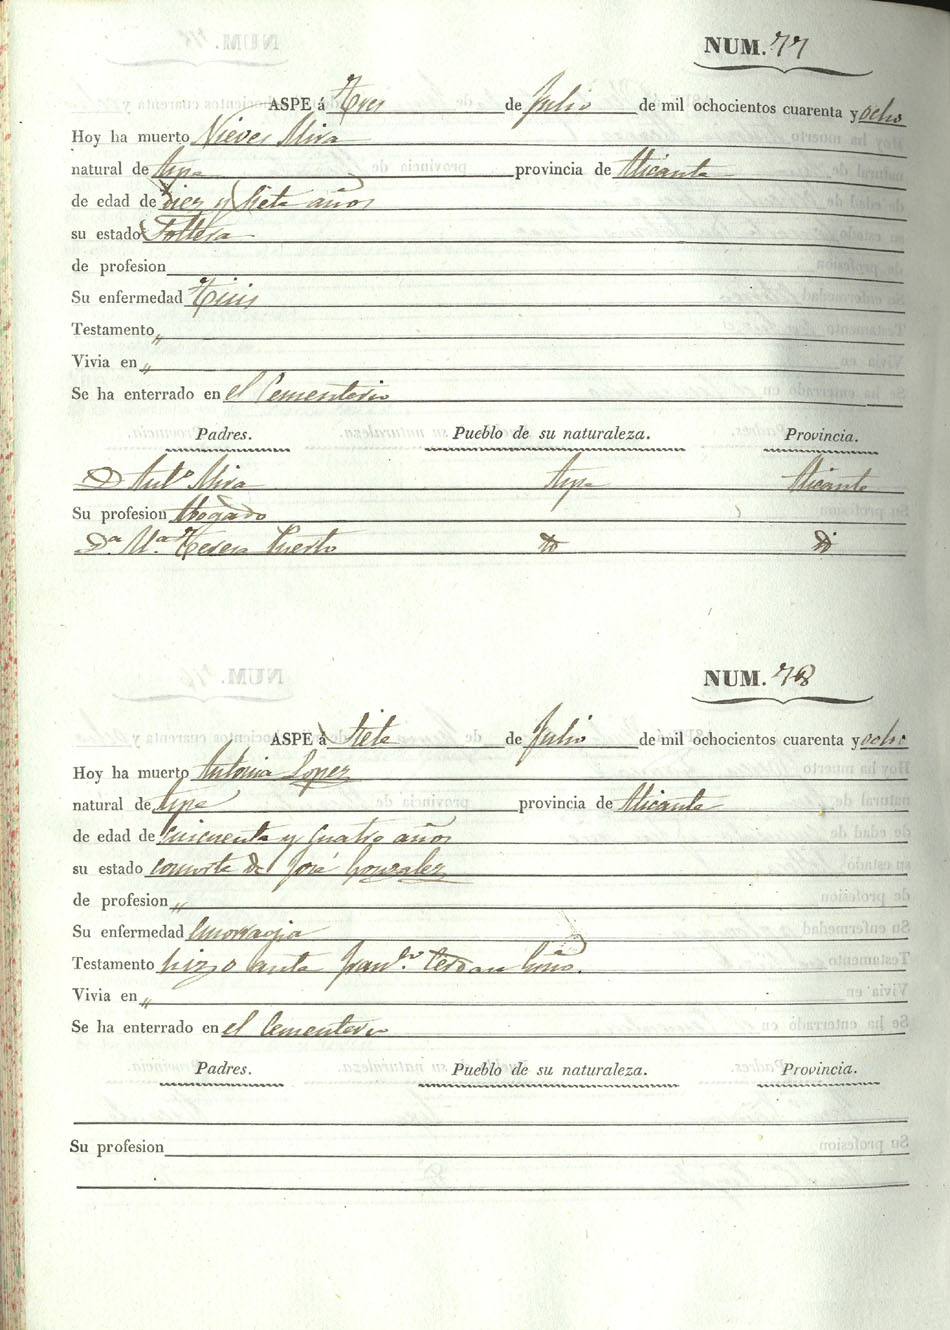 NUM. 77
ASPE á Tres de Julio de mil ochocientos cuarenta y ocho
Hoy ha muerto Nieves Mira
natural de Aspe provincia de Alicante
de edad de Diez y Siete años
su estado Soltera
de profesion
Su enfermedad Tisis
Testamento „
Vivia en „
Se ha enterrado en el Cementerio
Padres. Pueblo de su naturaleza. Provincia.
Dn Antº Mira Aspe Alicante
Su profesion Abogado
Dª Mª Teresa Puerto id id
NUM. 78
ASPE á Siete de Julio de mil ochocientos cuarenta y ocho
Hoy ha muerto Antonia Lopez
natural de Aspe provincia de Alicante
de edad de Cincuenta y Cuatro años
su estado consorte de José Gonzalez
de profesion „
Su enfermedad
Testamento hizo ante Cerdan
Vivia en „
Se ha enterrado en el Cementerio
Padres. Pueblo de su naturaleza. Provincia.
Su profesion